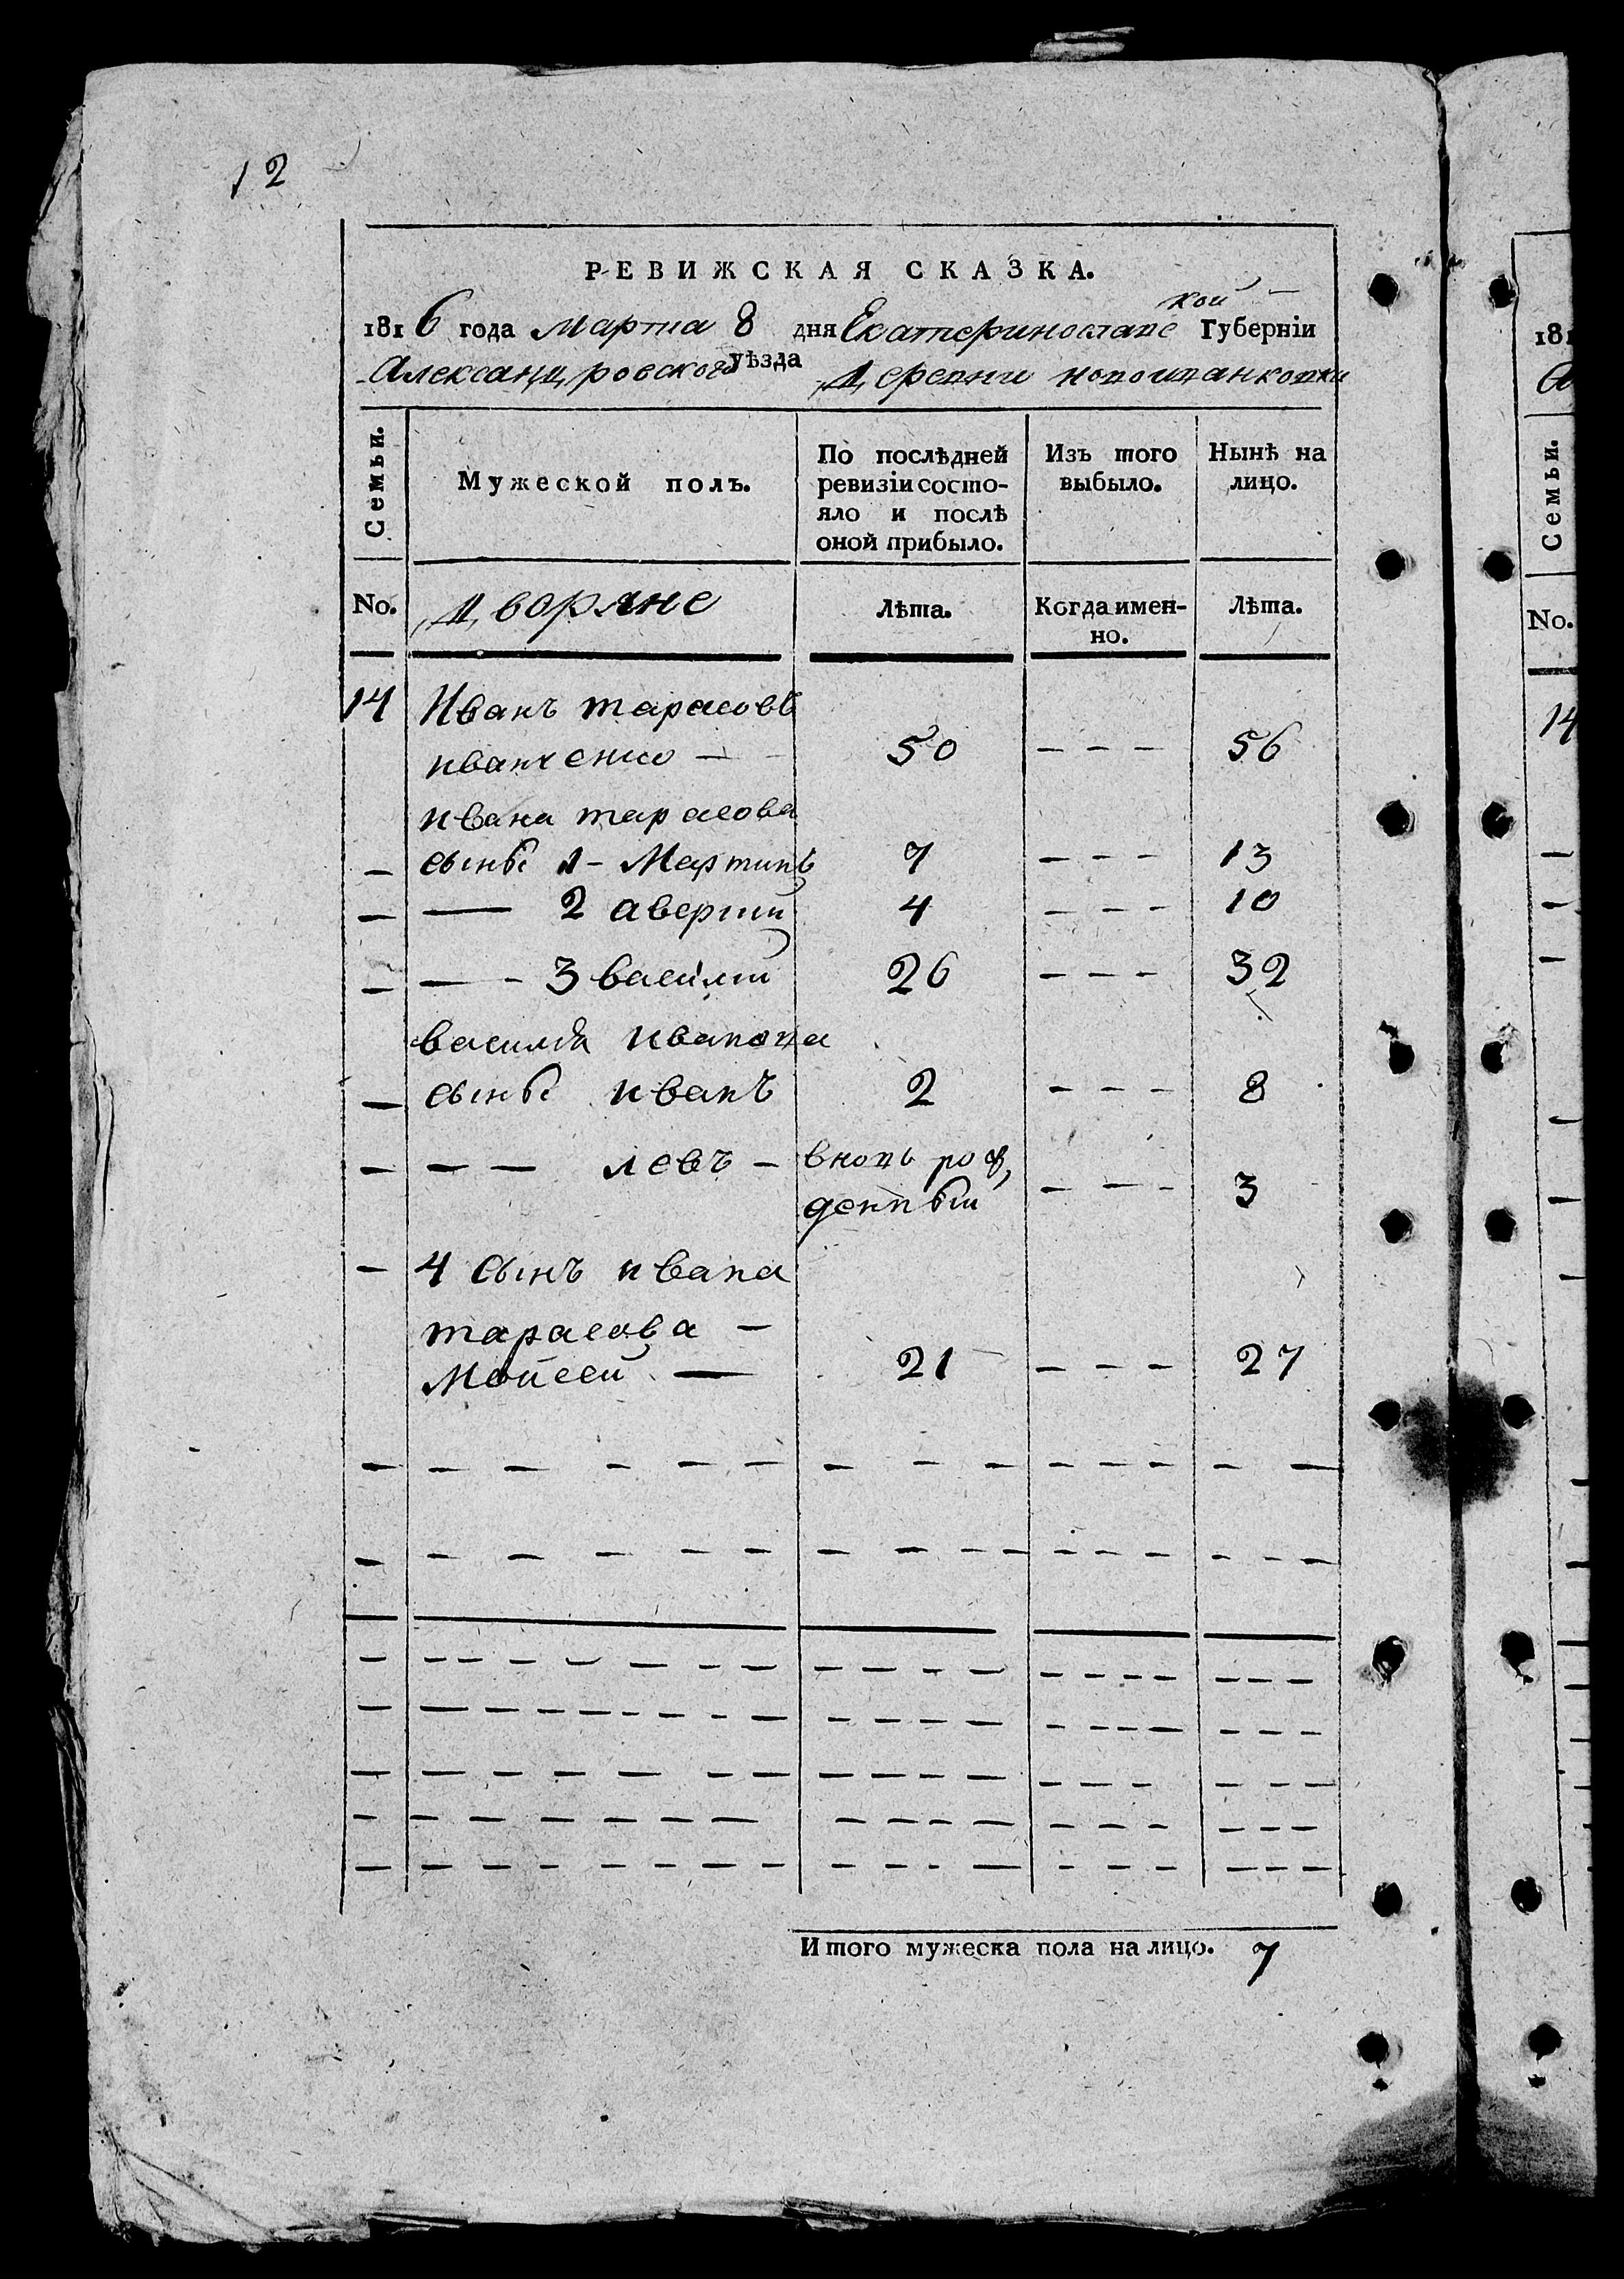 12
РЕВИЖСКАЯ СКАЗКА.
1816 года Марта 8 дня Екатеринославской Губерніи
Александровского уѣзда Деревни
Семьи. Мужеской полъ. По послѣдней ревизіи состо- Изъ того Нынѣ на
яло и послѣ выбыло. лицо.
оной прибыло.
No. Дворяне Лѣта. Когда имен- Лѣта.
но.
14 Иванъ тарасовъ
иванченко — 50 - - - 56
ивана тарасова
— сынъ 1 - Мартинъ 7 - - - 13
— — 2 аверкий 4 - - - 10
— — - 3 василий 26 - - - 32
василія иванова
— сынъ иванъ 2 - - - 8
— — — левъ — вновь рож,
денный - - - 3
— 4 сынъ ивана
тарасова —
Мойсей — 21 - - - 27
Итого мужеска пола на лицо. 7
181
Семьи.
No.
14